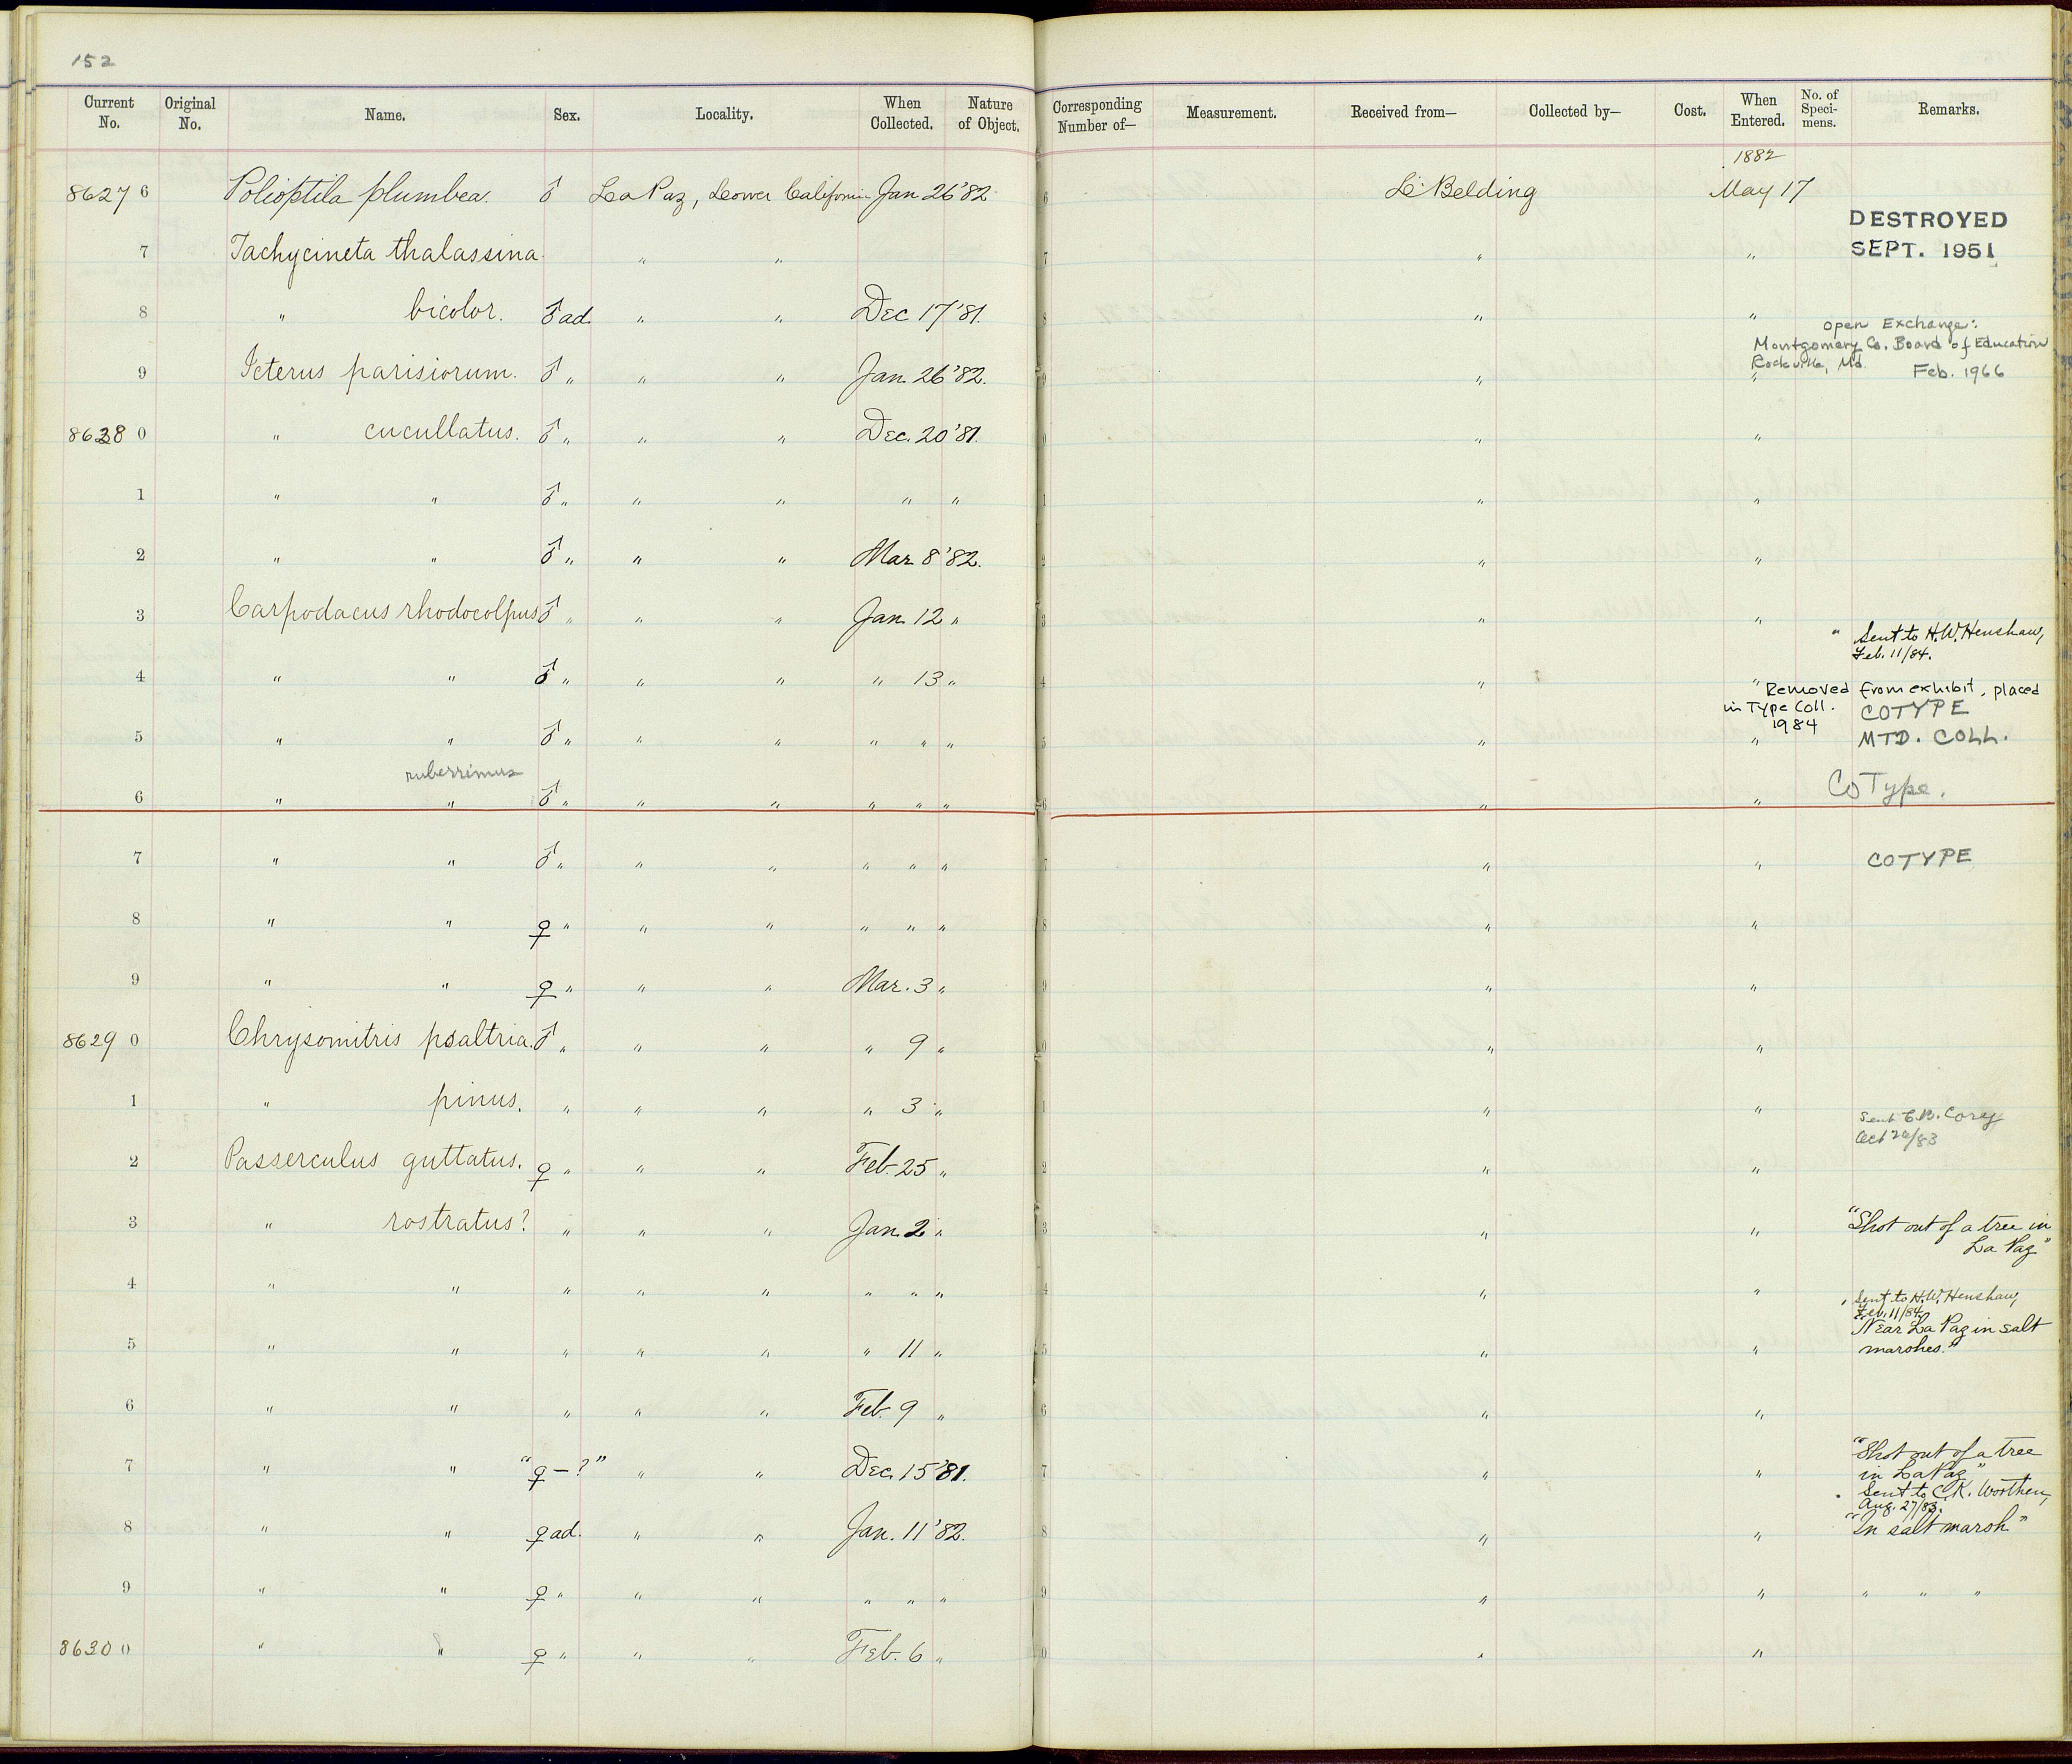 152
Current No. Original No. Name. Sex. Locality. When Collected. Nature of Object. Corresponding Number of— Measurement. Received from— Collected by— Cost. When Entered. No. of Speci-mens. Remarks.
1882
8627 6 Polioptila plumbea. ♂ La Paz, Lower California Jan 26 '82 6 L. Belding May 17
DESTROYED
SEPT. 1951
7 Tachycineta thalassina. " " 7 " "
8 " bicolor. ♂ ad. " " Dec 17 '81. 8 " "
Open Exchange:
Montgomery Co. Board of Education
Rockville, Md. Feb. 1966
9 Icterus parisiorum. ♂ " " " Jan. 26 '82. 9 " "
8628 0 " cucullatus. ♂ " " " Dec. 20 '81. 0 " "
1 " " ♂ " " " " " 1 " "
2 " " ♂ " " " Mar 8 '82. 2 " "
3 Carpodacus rhodocolpus ♂ " " " Jan. 12 " 3 " "
" Sent to H.W. Henshaw,
Feb. 11/84.
4 " " ♂ " " " " 13 " 4 " "
Removed from exhibit, placed
in Type Coll. COTYPE
1984
5 " " ♂ " " " " " " 5 " " MTD. COLL.
ruberrimus
6 " " ♂ " " " " " " 6 " " CoType.
7 " " ♂ " " " " " " 7 " " COTYPE
8 " " ♀ " " " " " " 8 " "
9 " " ♀ " " " Mar. 3 " 9 " "
8629 0 Chrysomitris psaltria. ♂ " " " " 9 " 0 " "
1 " pinus. " " " " 3 " 1 " "
Sent C.B. Cory
Oct 26/83
2 Passerculus guttatus. ♀ " " " Feb. 25 " 2 " "
3 " rostratus? " " " Jan. 2 " 3 " " "Shot out of a tree in
La Paz"
4 " " " " " " " " 4 " "
Sent to H.W. Henshaw,
Feb. 11/84.
5 " " " " " " 11 " 5 " " "Near La Paz in salt
marshes."
6 " " " " " Feb. 9 " 6 " "
7 " " "♀ – ?" " " Dec. 15 '81. 7 " " "Shot out of a tree
in La Paz"
Sent to C.K. Worthen,
Aug. 27/83.
8 " " ♀ ad. " " Jan. 11 '82. 8 " " "In salt marsh"
9 " " ♀ " " " " " " 9 " " " " "
8630 0 " " ♀ " " " Feb. 6 " 0 " "